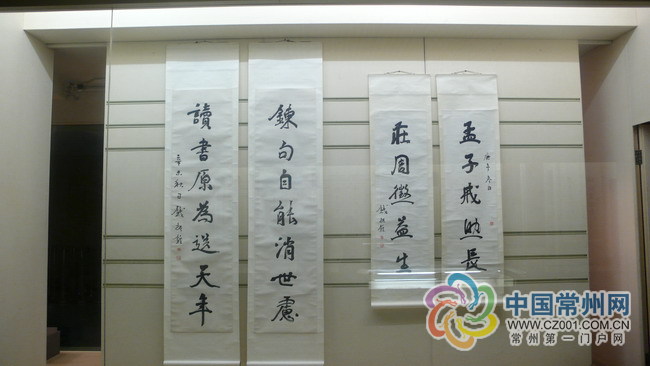 鍊句自能消世慮
讀書原為送天年
辛未秋日
孟子戒助長
庚午春日
莊周懲益生
中国常州网
WWW.CZ001.COM.CN
常州第一门户网